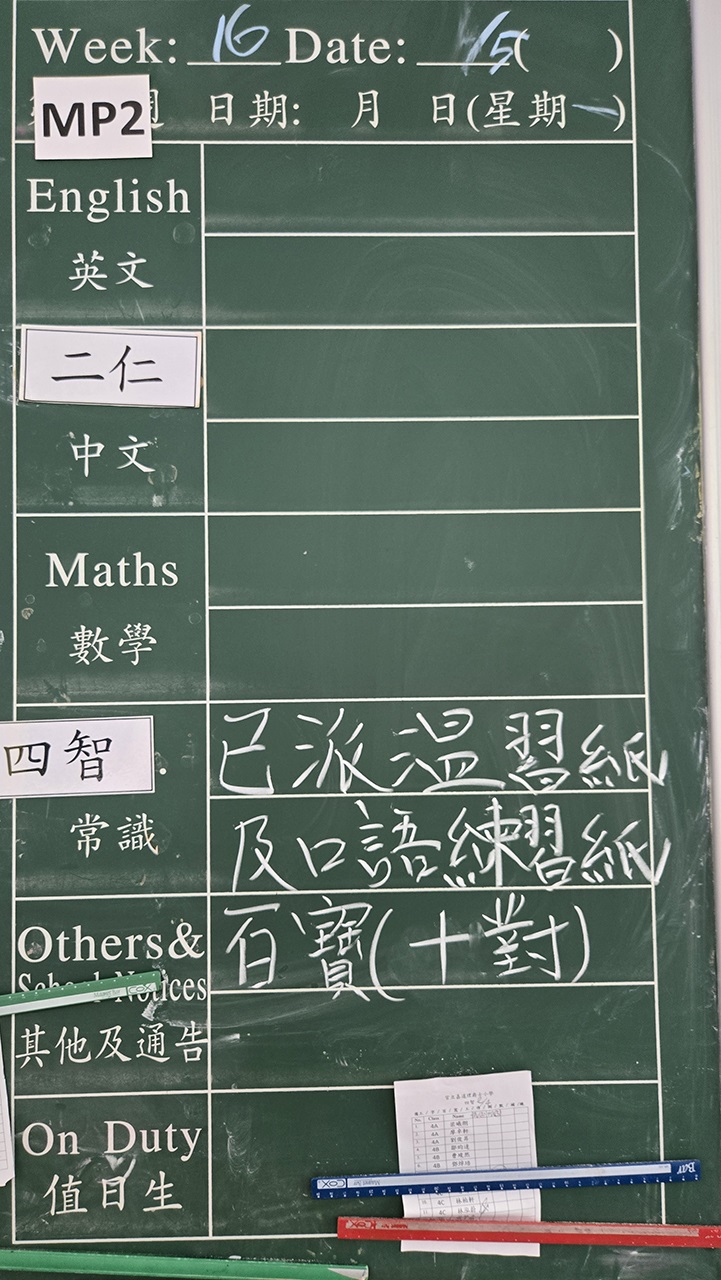 Week: 16 Date: 15 ( )
MP2 週 日期: 月 日(星期一)
English
英文
二仁
中文
Maths
數學
四智.
已派溫習紙
常識
及口語練習紙
Others&
School Notices
百寶(十對)
其他及通告
On Duty
值日生
No. Class Name
4A
4A
4A
4B
4B
4B
4C
4C
COX
COX